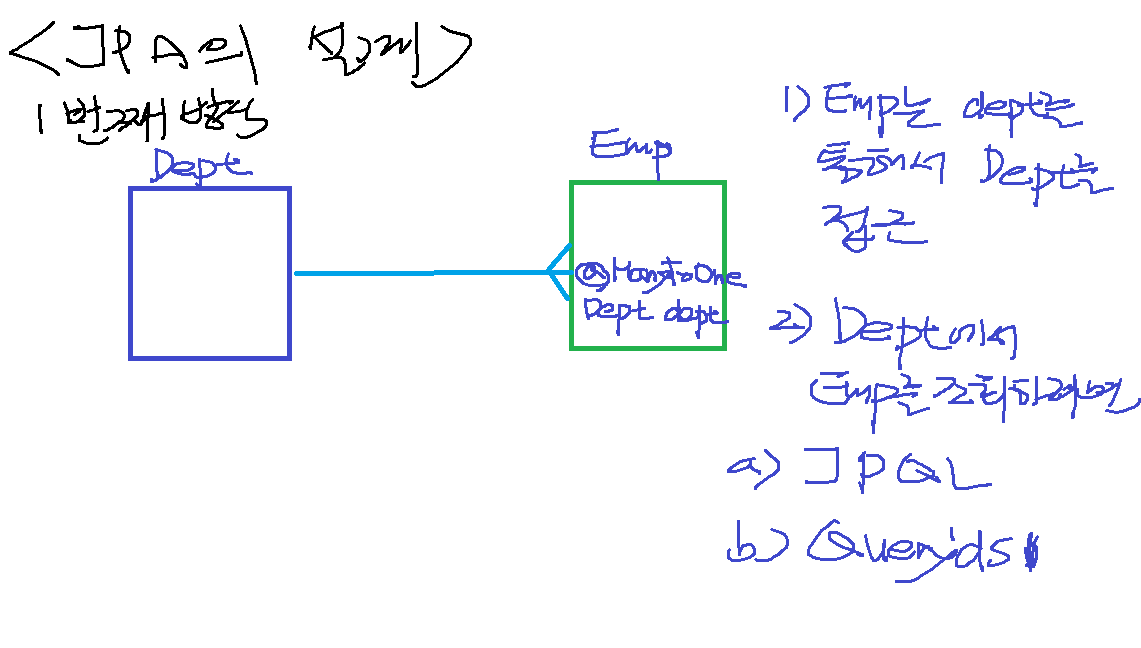 <JPA의 설계>
1 번째 방식
Dept
Emp
@ManytoOne
Dept dept
1) Emp는 dept를
통해서 Dept를
접근
2) Dept에서
Emp를 조회하려면
a) JPQL
b) Querydsl